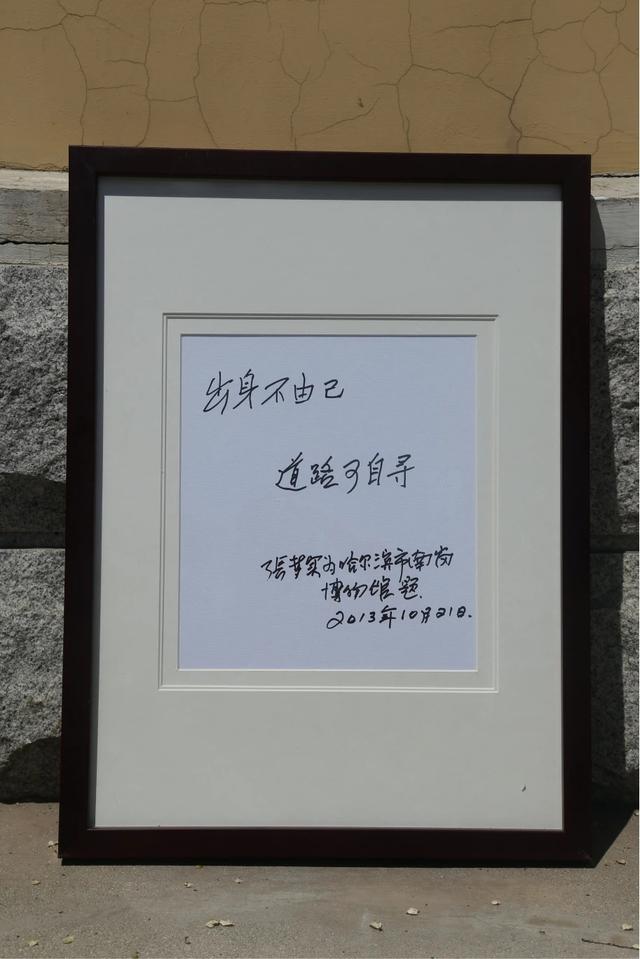 出身不由己
道路可自寻
張梦实为哈尔滨市南岗
博物馆题.
2013年10月21日.